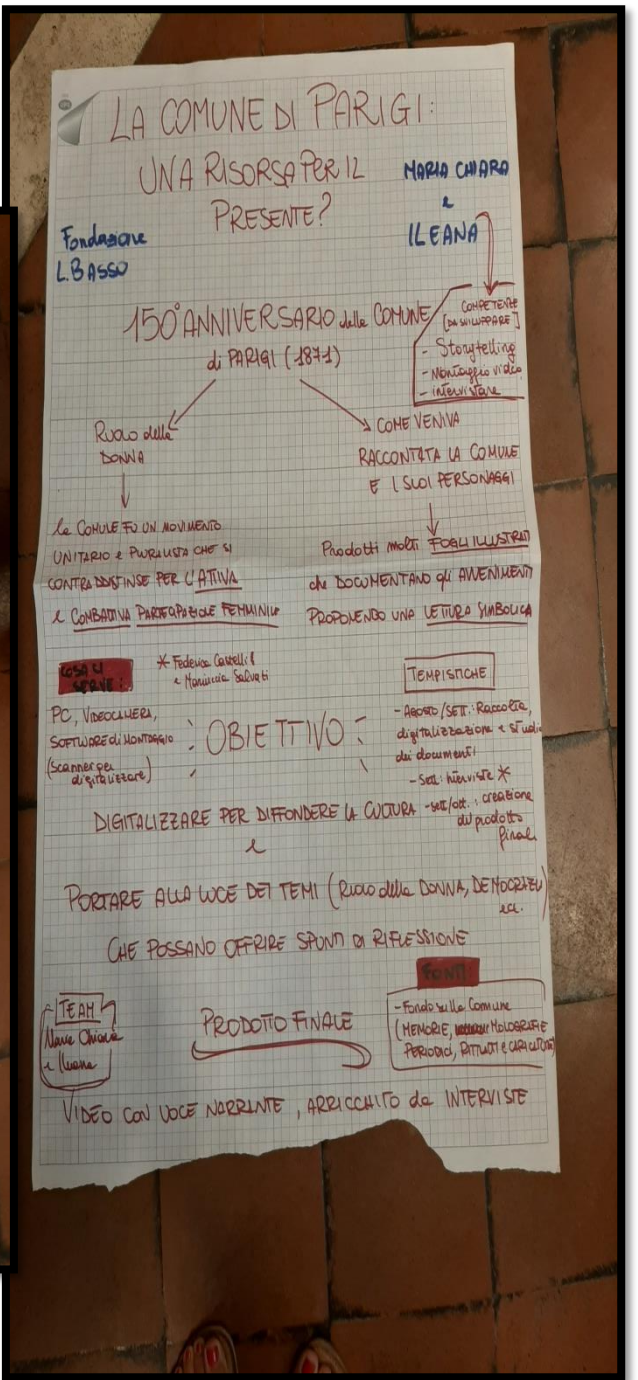 LA COMUNE DI PARIGI:
UNA RISORSA PER IL
PRESENTE?
MARIA CHIARA
e
ILEANA
Fondazione
L. BASSO
150° ANNIVERSARIO della COMUNE
di PARIGI (1871)
COMPETENZE
[DA SVILUPPARE]
- Storytelling
- Montaggio video
- intervistare
Ruolo della
DONNA
COME VENIVA
RACCONTATA LA COMUNE
E I SUOI PERSONAGGI
la COMUNE FU UN MOVIMENTO
UNITARIO e PLURALISTA CHE SI
CONTRADDISTINSE PER L'ATTIVA
e COMBATTIVA PARTECIPAZIONE FEMMINILE
Prodotti molti FOGLI ILLUSTRATI
che DOCUMENTANO gli AVVENIMENTI
PROPONENDO UNA LETTURA SIMBOLICA
COSA CI
SERVE:
* Federica Castelli
e Mariuccia Salvati
PC, VIDEOCAMERA,
SOFTWARE di MONTAGGIO
(Scanner per
digitalizzare)
OBIETTIVO
TEMPISTICHE
- AGOSTO/SETT.: Raccolta,
digitalizzazione e studio
dei documenti
- Sett: interviste *
- sett/ott.: creazione
del prodotto
finale
DIGITALIZZARE PER DIFFONDERE LA CULTURA
e
PORTARE ALLA LUCE DEI TEMI (Ruolo della DONNA, DEMOCRAZIA
ecc.
CHE POSSANO OFFRIRE SPUNTI DI RIFLESSIONE
TEAM
Maria Chiara
e Ileana
PRODOTTO FINALE
FONTI
- Fondo sulla Comune
(MEMORIE, MOLOGRAFIE
PERIODICI, RITRATTI e CARICATURE)
VIDEO CON VOCE NARRANTE, ARRICCHITO da INTERVISTE